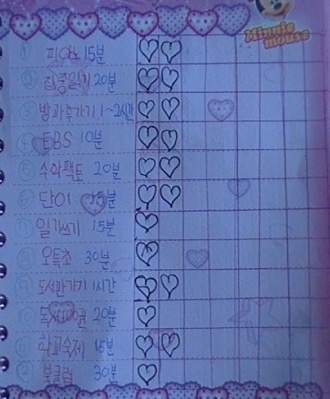 Minnie mouse
① 피아노 15분
② 집중일기 20분
③ 방과후가기 1~2시간
④ EBS 10분
⑤ 수학팩토 20분
⑥ 단어 15분
⑦ 일기쓰기 15분
⑧ 오독초 30분
⑨ 도서관가기 1시간
⑩ 20분
⑪ 학교숙제 15분
⑫ 북클럽 30분